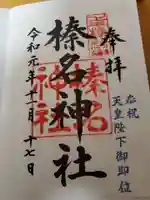 奉拝
奉祝
天皇陛下御即位
榛名神社
令和元年十一月十七日